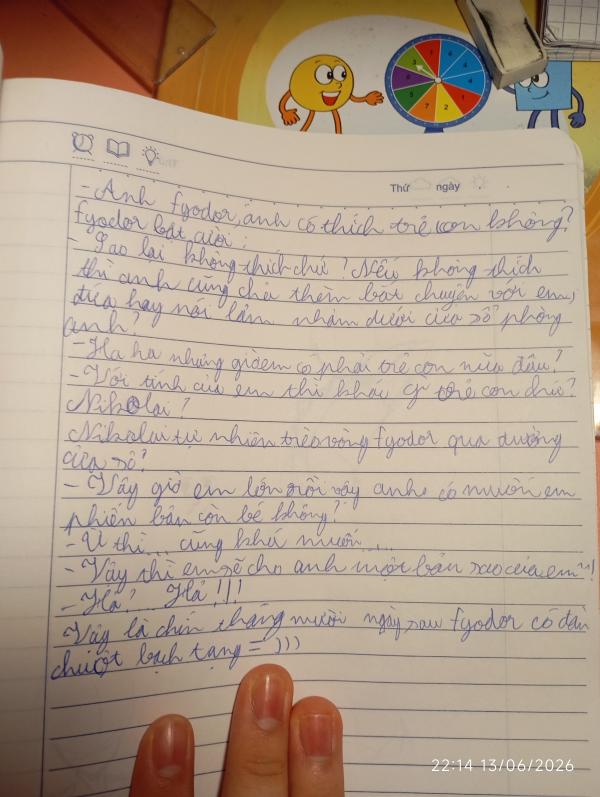 Thứ ngày
- Anh fyodor, anh có thích trẻ con không?
fyodor bật cười:
- Sao lại không thích chứ? Nếu không thích
thì anh cũng chả thèm bắt chuyện với em,
đứa hay nói lảm nhảm dưới cửa sổ phòng
anh?
- Ha ha nhưng giờ em có phải trẻ con nữa đâu?
- Với tính của em thì khác gì trẻ con chứ?
Nikolai?
Nikolai tự nhiên trèo vòng fyodor qua đường
cửa sổ?
- Vậy giờ em lớn rồi vậy anh có muốn em
phiên bản còn bé không?
- Ừ thì... cũng khá muốn...
- Vậy thì em sẽ cho anh một bản sao của em~!
- Hả?... Hả!!!
Vậy là chín tháng mười ngày sau fyodor có đàn
chuột bạch tạng =)))
22:14 13/06/2026